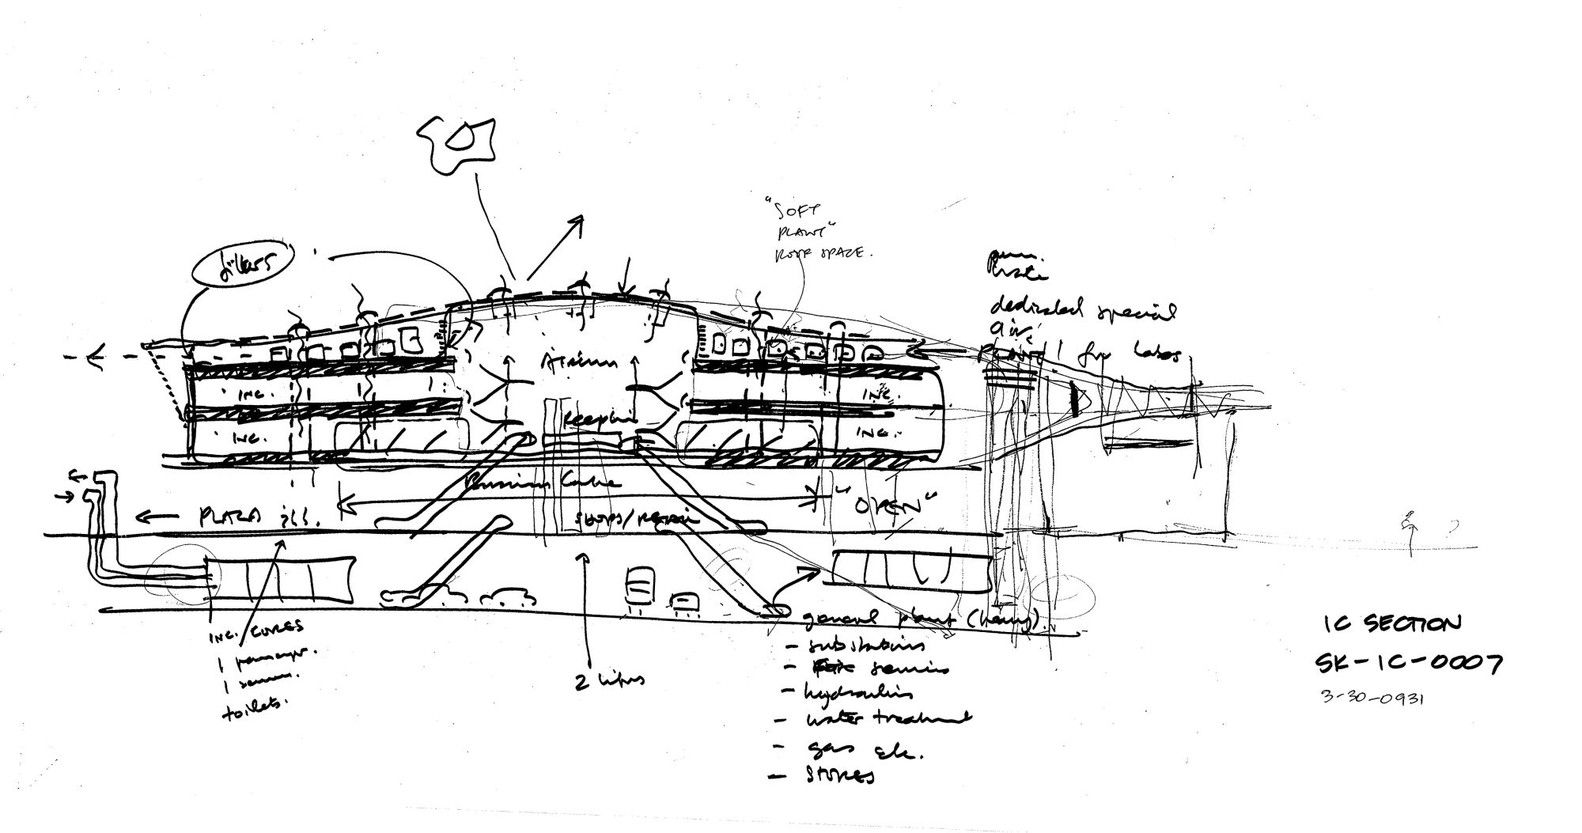 "SOFT
PLANT"
ROOF SPACE.
filters
dedicated special
air
plant / for labs
Atrium
INC.
INC.
INC.
INC.
Reception
Business Centre
"OPEN"
PLAZA
SHOPS/RETAIL
INC./CORES
1 passenger.
1
toilets.
2 lifts
general plant (heavy).
- substations
- services
- hydraulics
- water treatment
- gas etc.
- STORES
IC SECTION
SK-IC-0007
3-30-0931